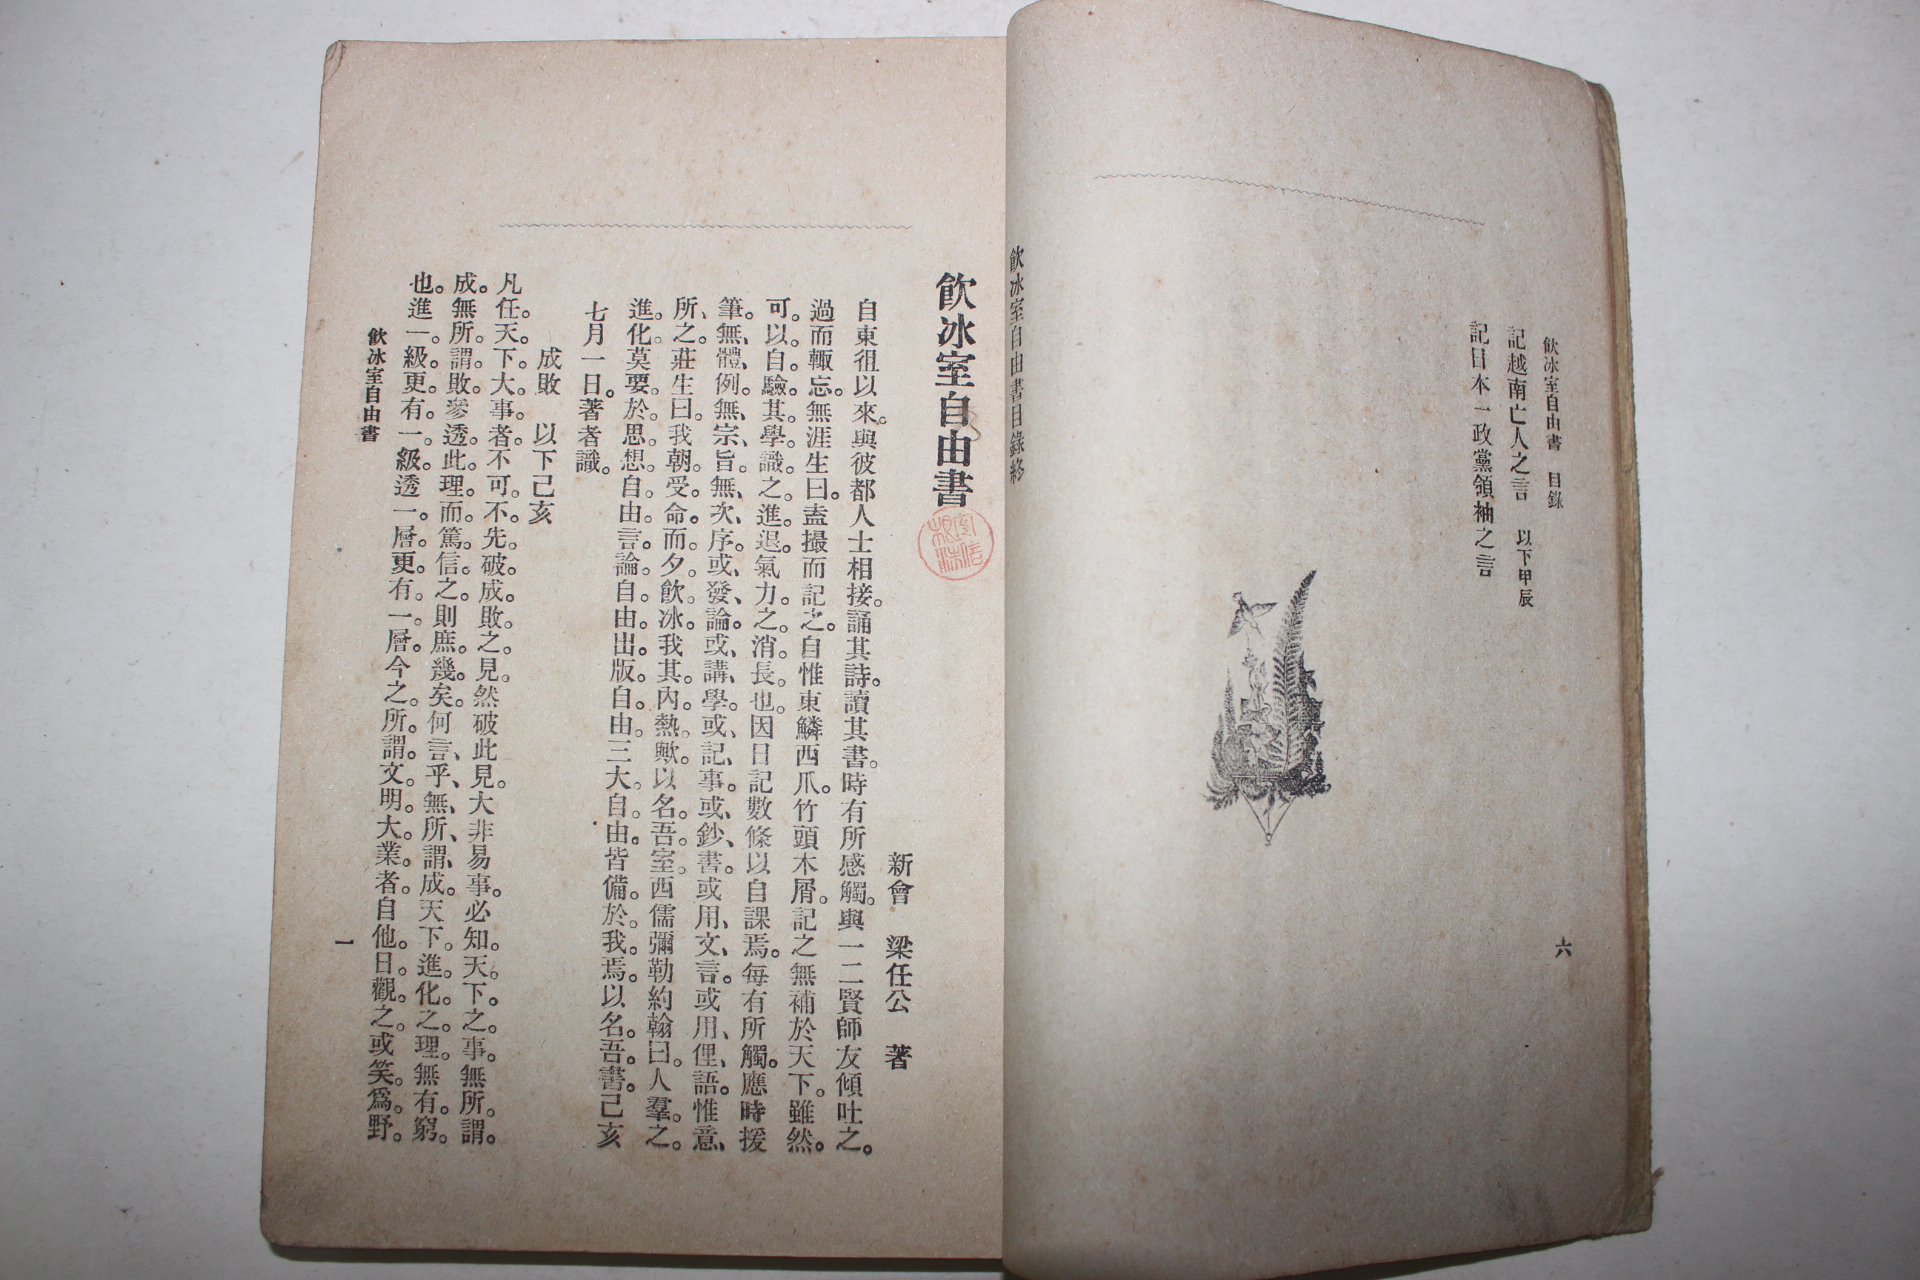 飲冰室自由書 目錄
六
記越南亡人之言 以下甲辰
記日本一政黨領袖之言
飲冰室自由書目錄終
飲冰室自由書
新會 梁任公 著
自東徂以來。與彼都人士相接。誦其詩。讀其書。時有所感觸。與一二賢師友傾吐之。
過而輒忘。無涯生曰。盍撮而記之。自惟東鱗西爪。竹頭木屑。記之無補於天下。雖然。
可。以。自。驗。其。學。識。之。進。退。氣。力。之。消。長。也。因日記數條以自課焉。每有所觸。應時援
筆。無、體、例。無、宗、旨。無、次、序。或、發、論。或、講、學。或、記、事。或、鈔、書。或用、文、言。或用、俚、語。惟意、
所、之。莊生曰。我朝。受。命。而。夕。飲。冰。我。其。內。熱。歟。以。名。吾。室。西儒彌勒約翰曰。人。羣。之。
進。化。莫。要。於。思。想。自。由。言。論。自。由。出。版。自。由。三。大。自。由。皆。備。於。我。焉。以。名。吾。書。己亥
七月一日。著者識。
成敗 以下己亥
凡。任。天。下。大。事。者。不。可。不。先。破。成。敗。之。見。然破此見。大非易事。必知。天。下。之。事。無。所。謂。
成。無。所。謂。敗。參。透。此。理。而。篤。信。之。則庶。幾。矣。何、言、乎、無、所、謂、成。天。下。進。化。之。理。無。有。窮。
也。進。一。級。更。有。一。級。透。一。層。更。有。一。層。今。之。所。謂。文。明。大。業。者。自。他。日。觀。之。或。笑。爲。野。
飲冰室自由書
一